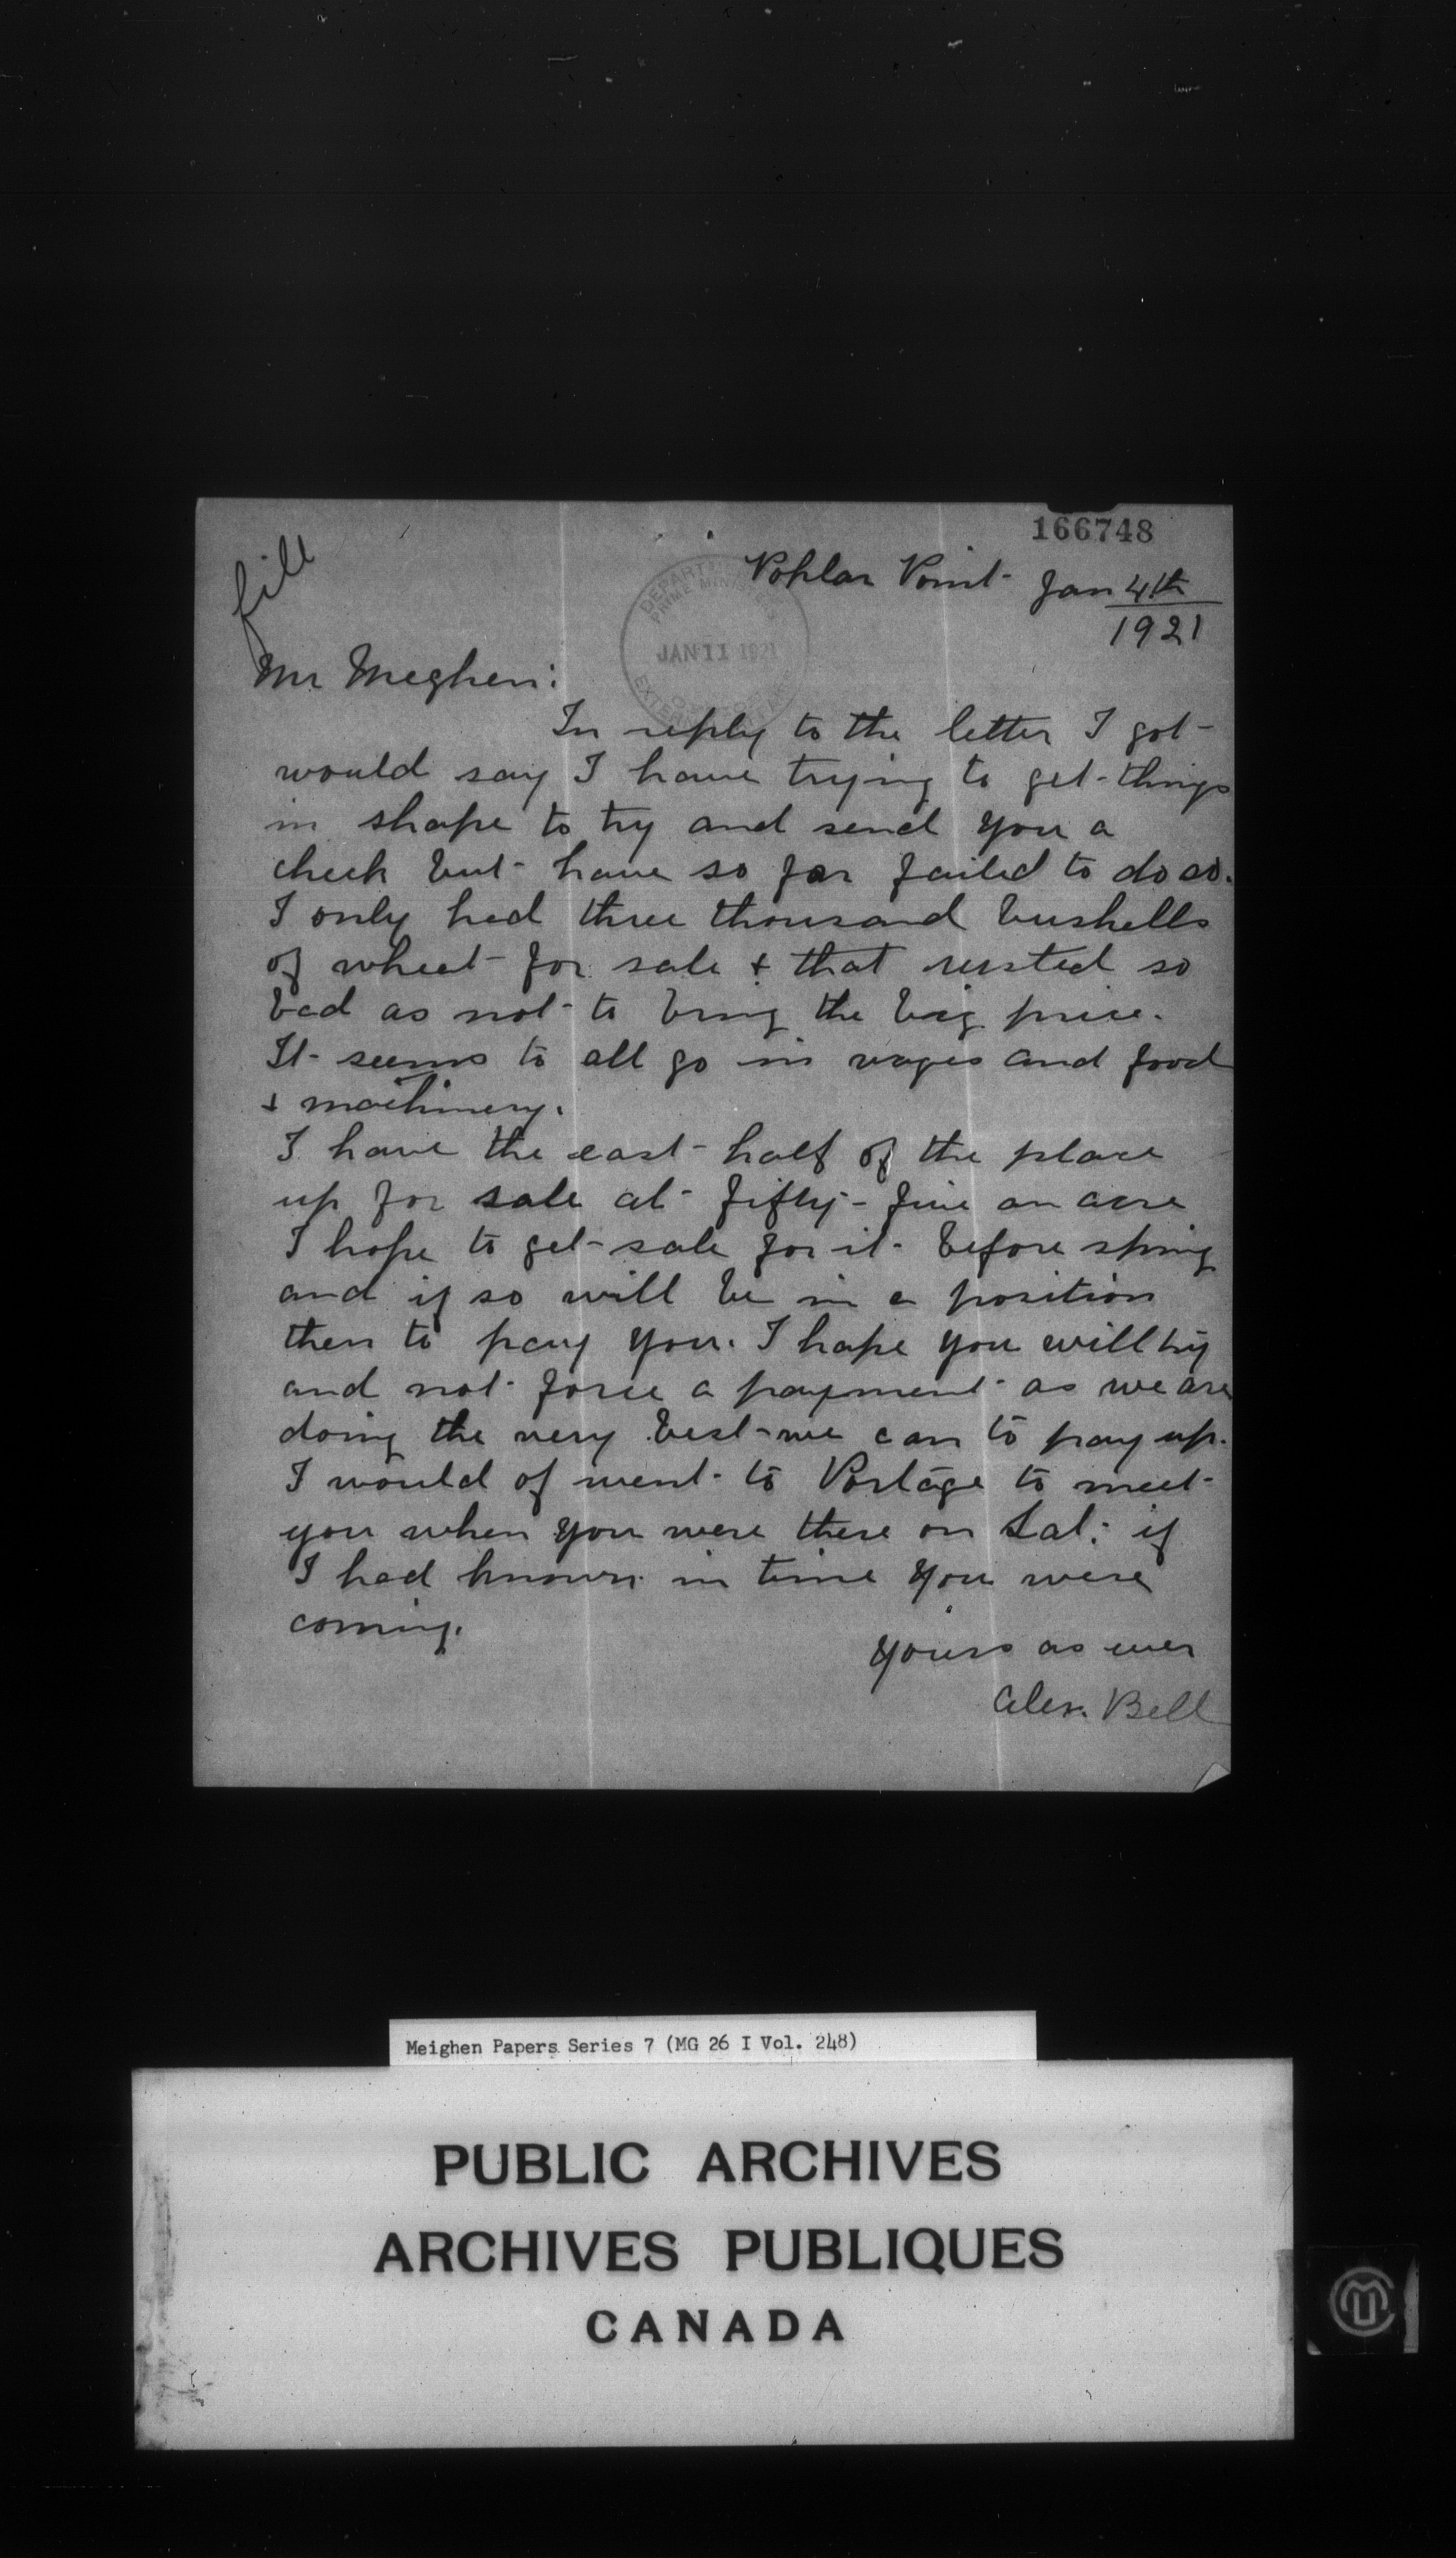 166748
file
Poplar Point Jan 4th
1921
DEPARTMENT
PRIME MINISTER
JAN 11 1921
EXTERNAL
Mr Meghen:
In reply to the letter I got
would say I have trying to get things
in shape to try and send you a
check but have so far failed to do so.
I only had three thousand bushells
of wheat for sale + that rusted so
bad as not to bring the big price.
It seems to all go in wages and food
+ machinery.
I have the east half of the place
up for sale at fifty-five an acre
I hope to get sale for it before spring
and if so will be in a position
then to pay you. I hope you will try
and not force a payment as we are
doing the very best we can to pay up.
I would of went to Portage to meet
you when you were there on Sat. if
I had known in time you were
coming.
Yours as ever
Alex. Bell
Meighen Papers Series 7 (MG 26 I Vol. 248)
PUBLIC ARCHIVES
ARCHIVES PUBLIQUES
CANADA